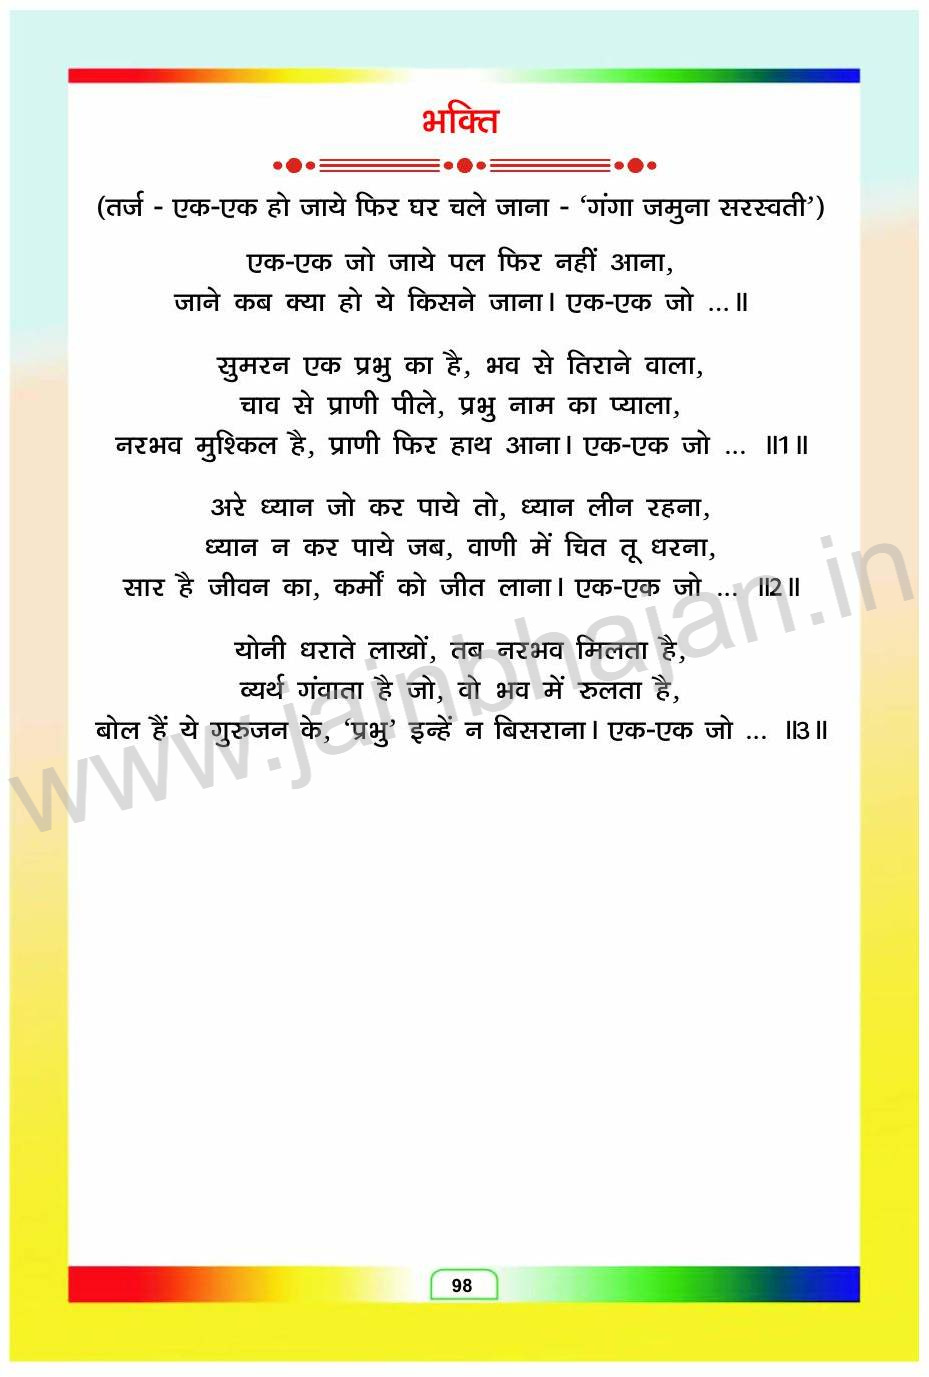 भक्ति
(तर्ज - एक-एक हो जाये फिर घर चले जाना - ‘गंगा जमुना सरस्वती’)
एक-एक जो जाये पल फिर नहीं आना,
जाने कब क्या हो ये किसने जाना। एक-एक जो ...॥
सुमरन एक प्रभु का है, भव से तिराने वाला,
चाव से प्राणी पीले, प्रभु नाम का प्याला,
नरभव मुश्किल है, प्राणी फिर हाथ आना। एक-एक जो ... ॥1॥
अरे ध्यान जो कर पाये तो, ध्यान लीन रहना,
ध्यान न कर पाये जब, वाणी में चित तू धरना,
सार है जीवन का, कर्मों को जीत लाना। एक-एक जो ... ॥2॥
योनी धराते लाखों, तब नरभव मिलता है,
व्यर्थ गंवाता है जो, वो भव में रुलता है,
बोल हैं ये गुरुजन के, ‘प्रभु’ इन्हें न बिसराना। एक-एक जो ... ॥3॥
www.jainbhajan.in
98